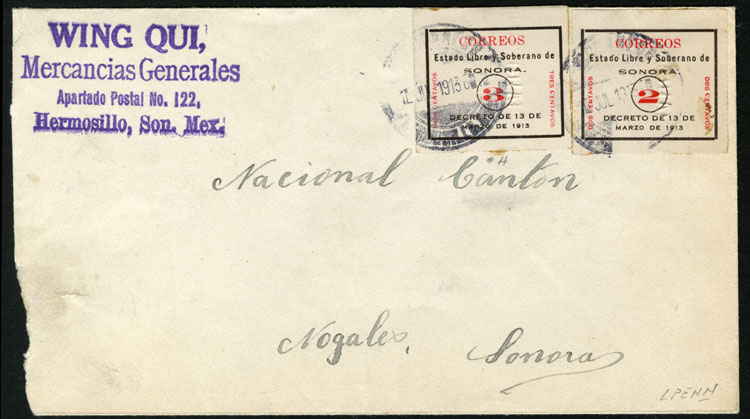 WING QUI,
Mercancias Generales
Apartado Postal No. 122,
Hermosillo, Son. Mex.
CORREOS
Estado Libre y Soberano de
SONORA.
TRES CENTAVOS
3
TRES CENTAVOS
DECRETO DE 13 DE
MARZO DE 1913
12 JUL 1913
CORREOS
Estado Libre y Soberano de
SONORA.
DOS CENTAVOS
2
DOS CENTAVOS
DECRETO DE 13 DE
MARZO DE 1913
JUL
#4
Nacional Canton
Nogales, Sonora
LPENN